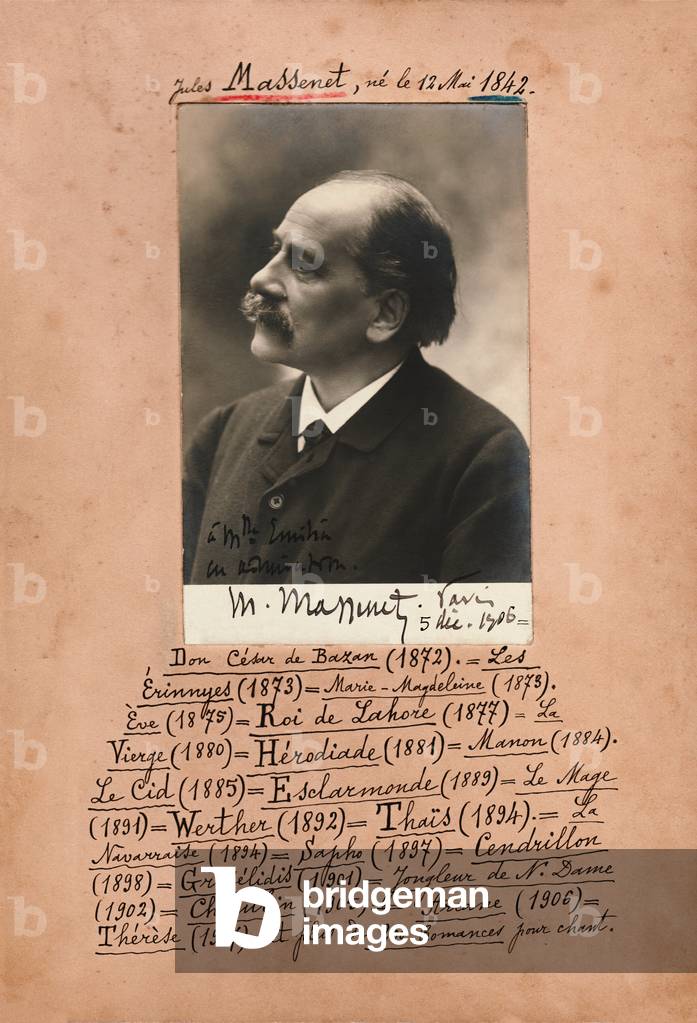 Jules Massenet, né le 12 Mai 1842.
à Mlle Emilia
en admiration.
M. Massenet. Paris
5 déc. 1906=
Don César de Bazan (1872).= Les
Érinnyes (1873)= Marie-Magdeleine (1873).
Ève (1875)= Roi de Lahore (1877)= La
Vierge (1880)= Hérodiade (1881)= Manon (1884).
Le Cid (1885)= Esclarmonde (1889)= Le Mage
(1891)= Werther (1892)= Thaïs (1894).= La
Navarraise (1894)= Sapho (1897)= Cendrillon
(1898)= Grisélidis (1901)= Jongleur de N. Dame
(1902)= (1906)=
Thérèse Romances pour chant.
bridgeman
images